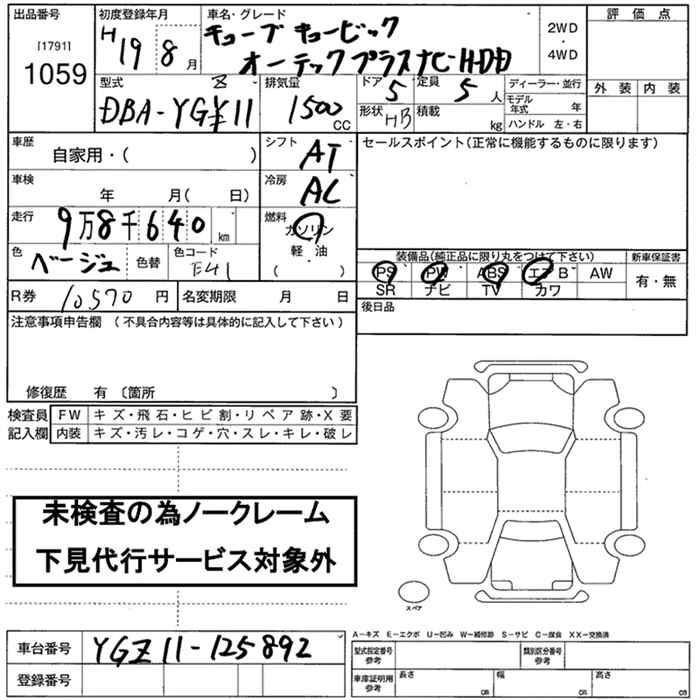 出品番号
[1791]
1059
初度登録年月
H19 8月
車名・グレード
キューブ キュービック
オーテックプラスナビHDD
2WD
・
4WD
評価点
外装 内装
型式
DBA-YGZ11
Z
排気量
1500 CC
ドア 5
定員 5人
形状 HB
積載 kg
ディーラー・並行
モデル年式 年
ハンドル 左・右
車歴
自家用・( )
シフト
AT
セールスポイント(正常に機能するものに限ります)
車検
年 月( 日)
冷房
AC
走行
9万8千640km
燃料
ガソリン
軽・油
( )
色
ベージュ
色替
色コード
E41
装備品(純正品に限り丸をつけて下さい)
新車保証書
PS PW ABS エアB AW
有・無
SR ナビ TV カワ
R券 10570円
名変期限 月 日
後日品
注意事項申告欄(不具合内容等は具体的に記入して下さい)
修復歴 有〔箇所 〕
検査員
記入欄
FW キズ・飛石・ヒビ割・リペア跡・X要
内装 キズ・汚レ・コゲ・穴・スレ・キレ・破レ
未検査の為ノークレーム
下見代行サービス対象外
スペア
A-キズ E-エクボ U-凹み W-補修跡 S-サビ C-腐食 XX-交換済
車台番号
YGZ11-125892
登録番号
型式指定番号
参考
類別区分番号
参考
車庫証明用
参考
長さ cm
幅 cm
高さ cm